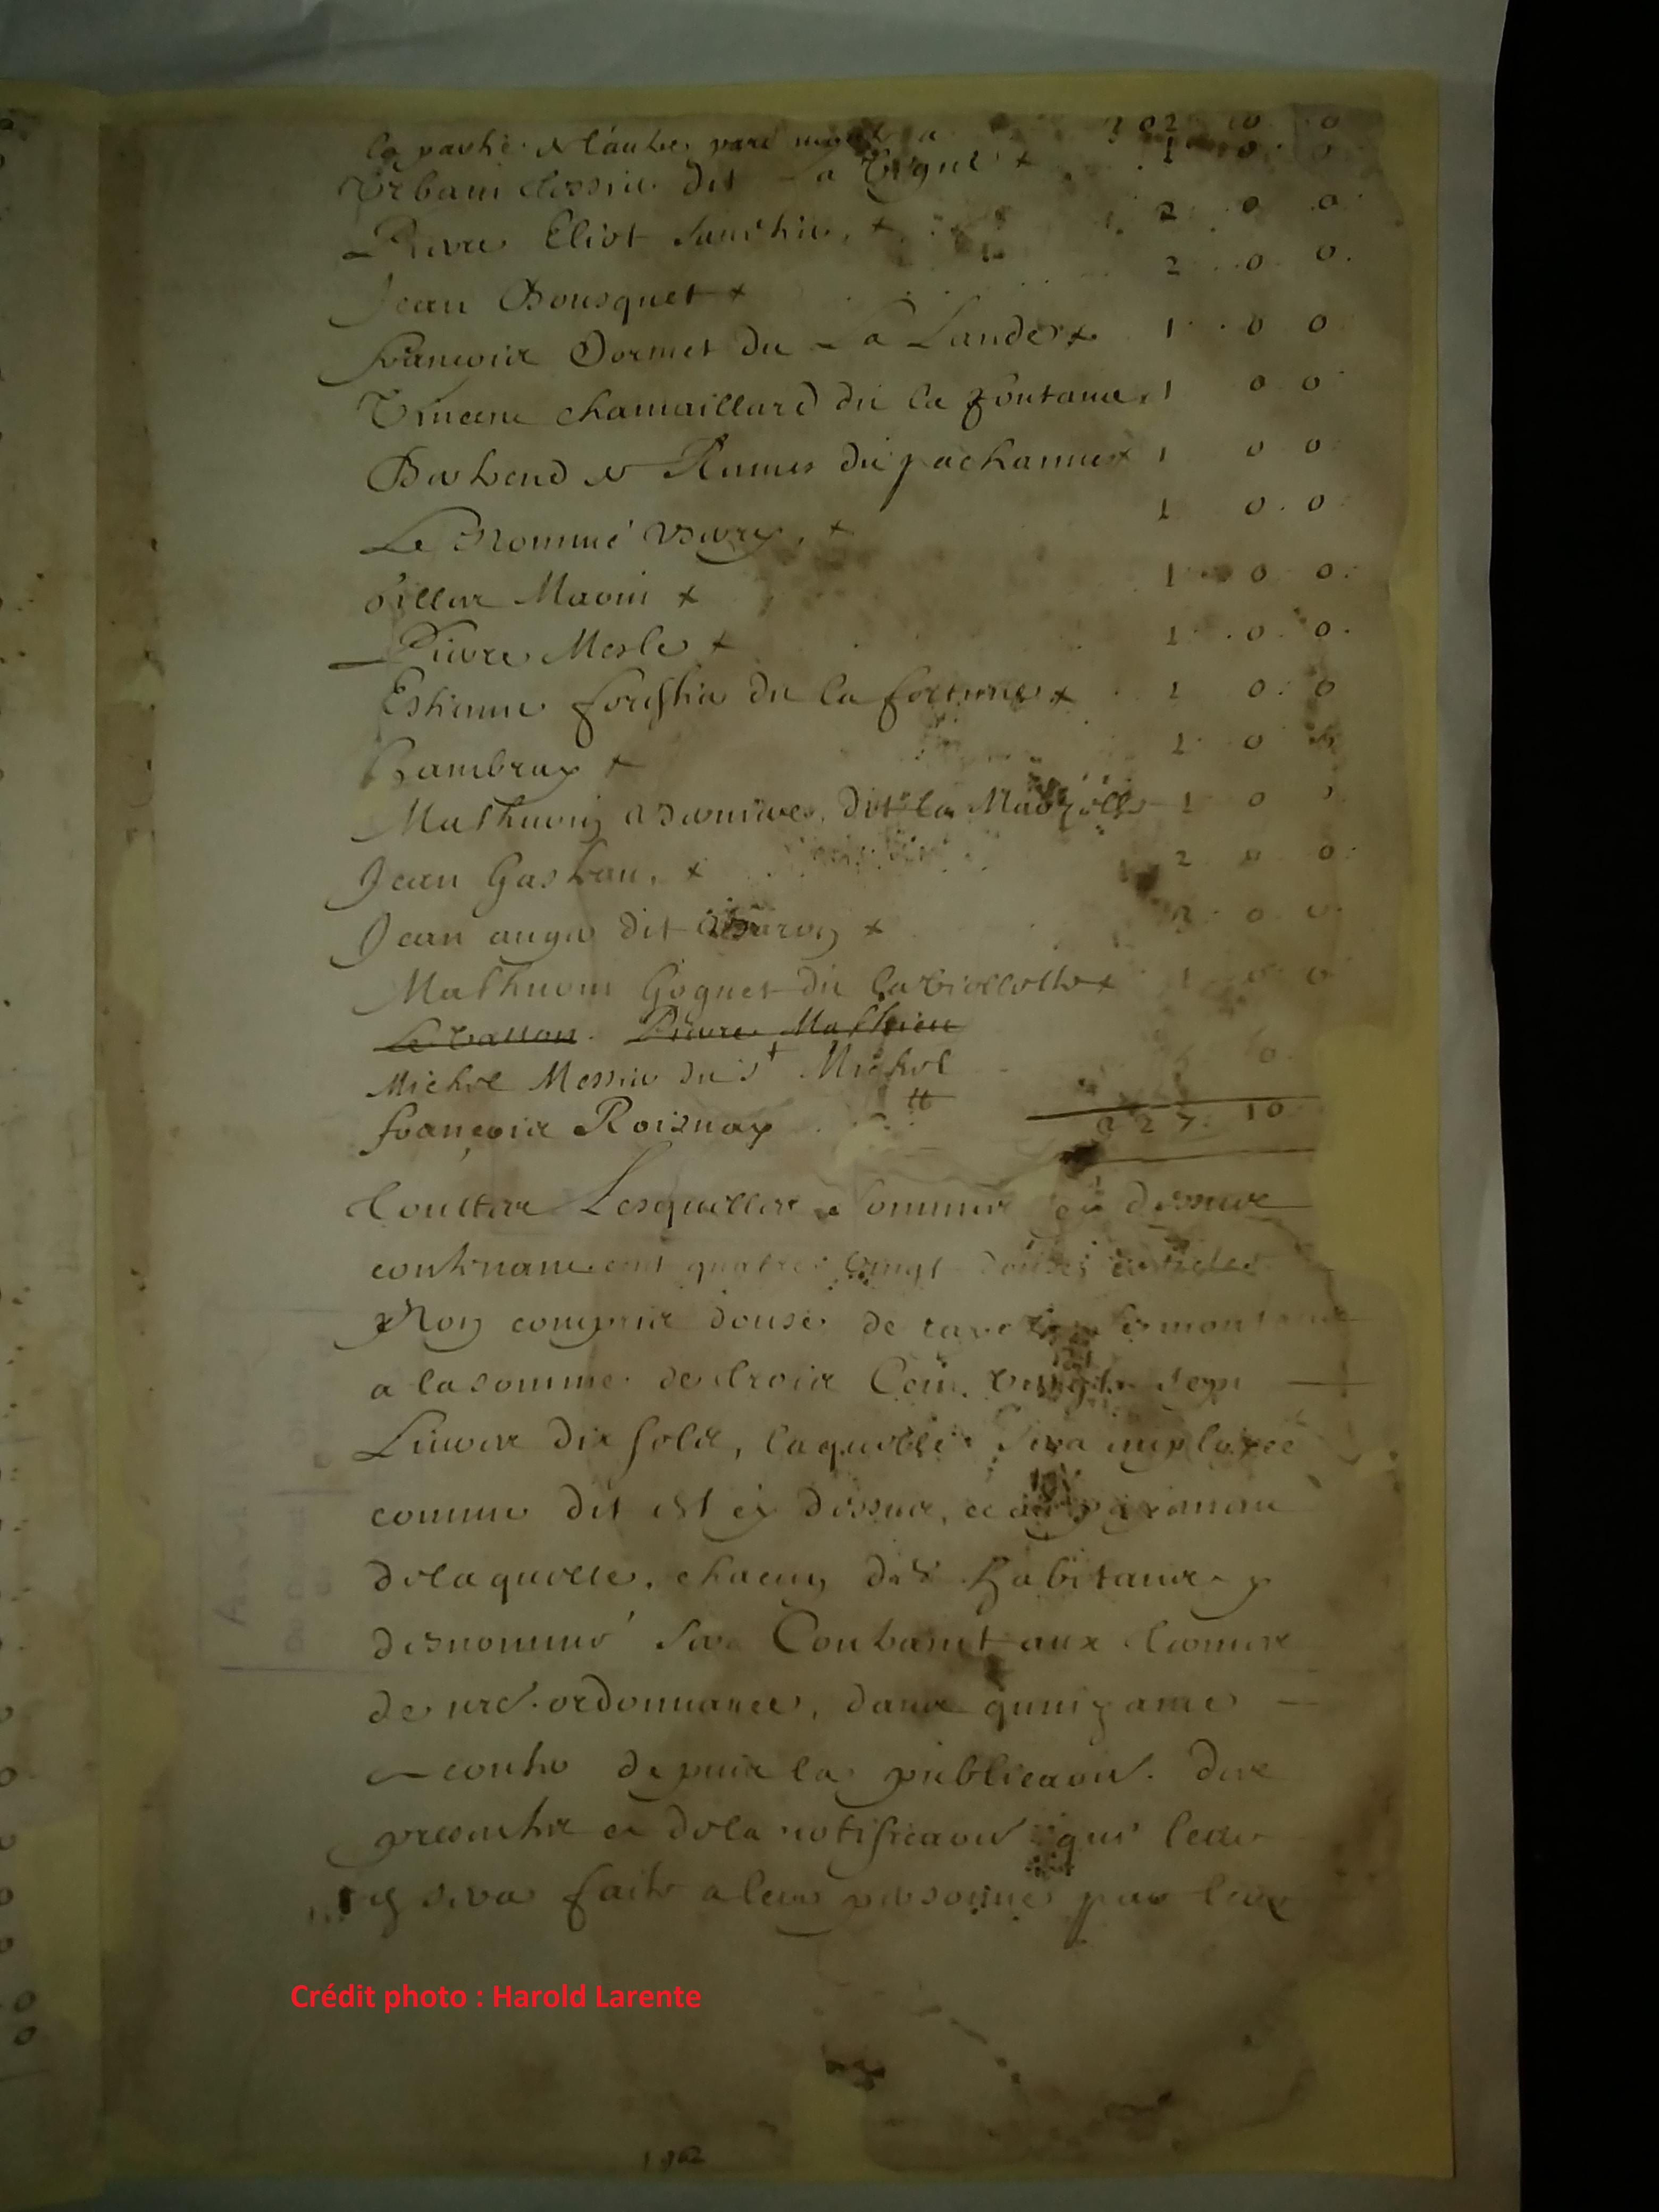 la partie de l'autre part monte a 302 10 0
Urbain Tessier dit La Vigne x 1 0 0
Pierre Eliot x 2 0 0
Jean Bousquet x 2 0 0
francois Dormet dit La Lande x 1 0 0
Vincent chamaillard dit la fontaine x 1 0 0
Bertrend de Rennes dit pachanne x 1 0 0
Le Nommé x 1 0 0
Gilles Maoin x 1 0 0
Pierre Mesle x 1 0 0
Estienne forestier dit la fortune x 1 0 0
Chambray x 1 0
Mathurin dit la 1 0
Jean Gasteau x 2 0 0
Jean auger dit Baron x 0 0
Mathurin Goguet dit la Violette x 1 0 0
Pierre Mathieu
Michel Messier dit St Michel 0
francois Roisnay tt 327 10
Touttes Lesquelles sommes cy dessus
contenant cent quatre vingt douze articles
Non compris douze de se montant
a la somme de trois Cent vingt sept
Livres dix sols, laquelle sera employée
comme dit est cy dessus, et au payement
de laquelle, chacun des habitans y
desnommé sera Contraint aux termes
de nre ordonnance, dans quinzaine
a conter depuis la publicaon des
presentes et de la notificaon qui leur
en sera faite a leur personne par leur
Crédit photo : Harold Larente